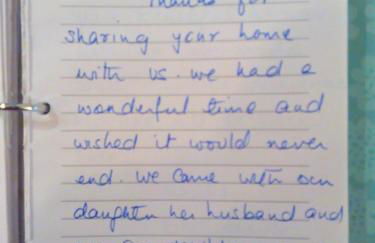 Thanks for
sharing your home
with us. we had a
wonderful time and
wished it would never
end. we came with our
daughter her husband and